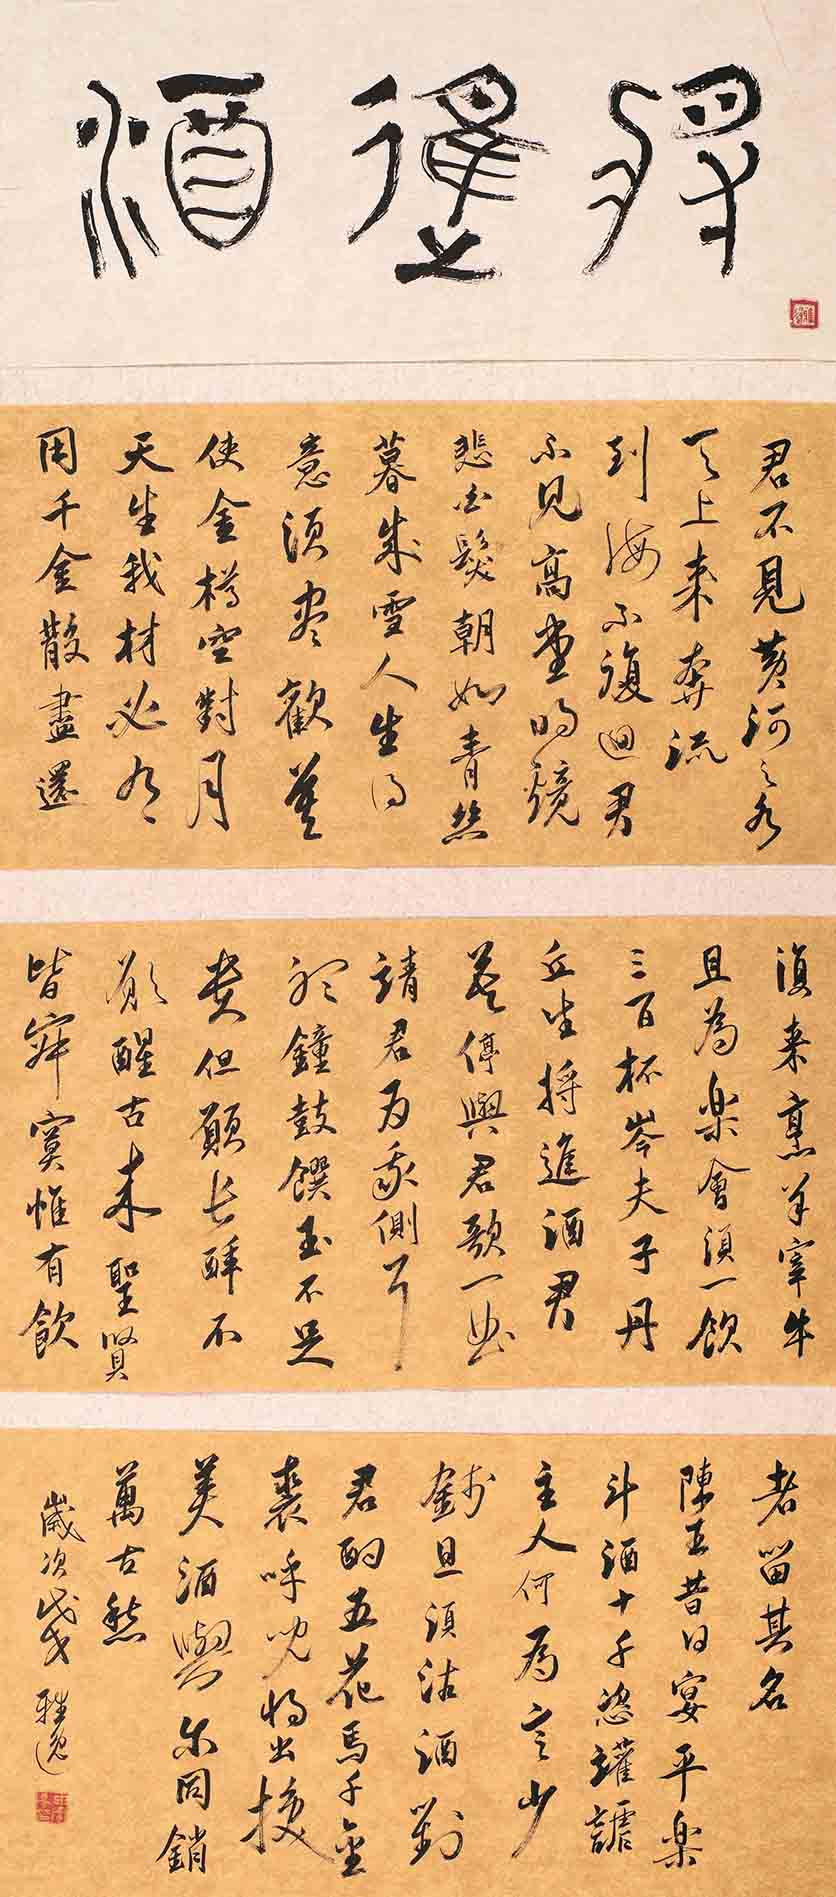 將進酒
君不見黃河之水
天上來奔流
到海不復迴君
不見高堂明鏡
悲白髮朝如青絲
暮成雪人生得
意須盡歡莫
使金樽空對月
天生我材必有
用千金散盡還
復來烹羊宰牛
且為楽會須一飲
三百杯岑夫子丹
丘生將進酒君
莫停與君歌一曲
請君為我側耳
聽鐘鼓饌玉不足
貴但願長醉不
願醒古來聖賢
皆寂寞惟有飲
者留其名
陳王昔日宴平楽
斗酒十千恣讙謔
主人何為言少
錢且須沽酒對
君酌五花馬千金
裘呼兒將出換
美酒與爾同銷
萬古愁
歲次戊戌